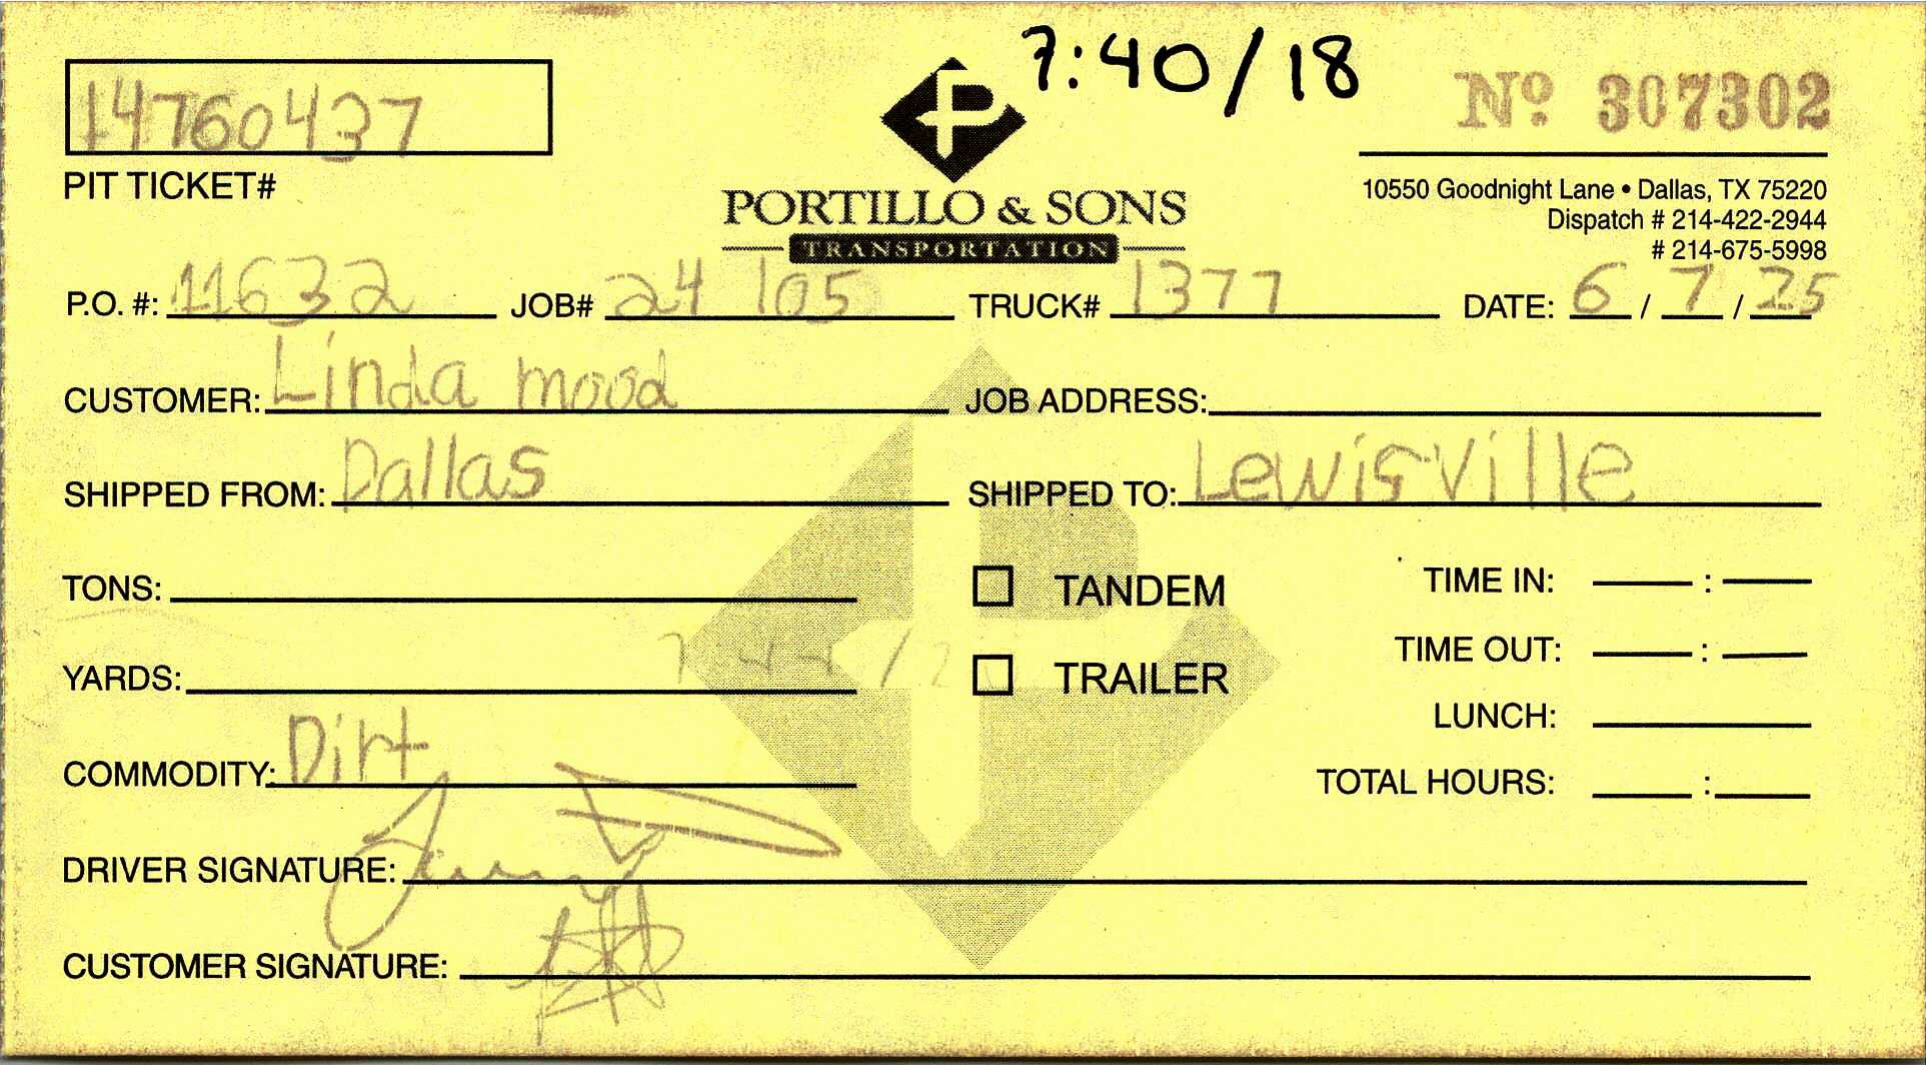 7:40/18
14760437
Nº 307302
PIT TICKET#
PORTILLO & SONS
TRANSPORTATION
10550 Goodnight Lane • Dallas, TX 75220
Dispatch # 214-422-2944
# 214-675-5998
P.O. #: 11632 JOB# 24 105 TRUCK# 1377 DATE: 6 / 7 / 25
CUSTOMER: Linda mood JOB ADDRESS:
SHIPPED FROM: Dallas SHIPPED TO: Lewisville
TONS: TANDEM TIME IN: :
YARDS: TRAILER TIME OUT: :
LUNCH:
COMMODITY: Dirt TOTAL HOURS: :
DRIVER SIGNATURE:
CUSTOMER SIGNATURE: